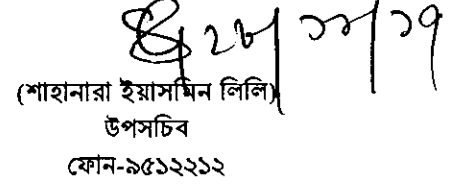 ২৮/১১/১৭
(শাহানারা ইয়াসমিন লিলি)
উপসচিব
ফোন-৯৫১২২১২